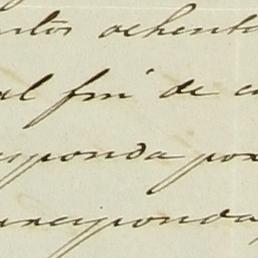 ntos ochent
al fin de c
sponda por
rresponda